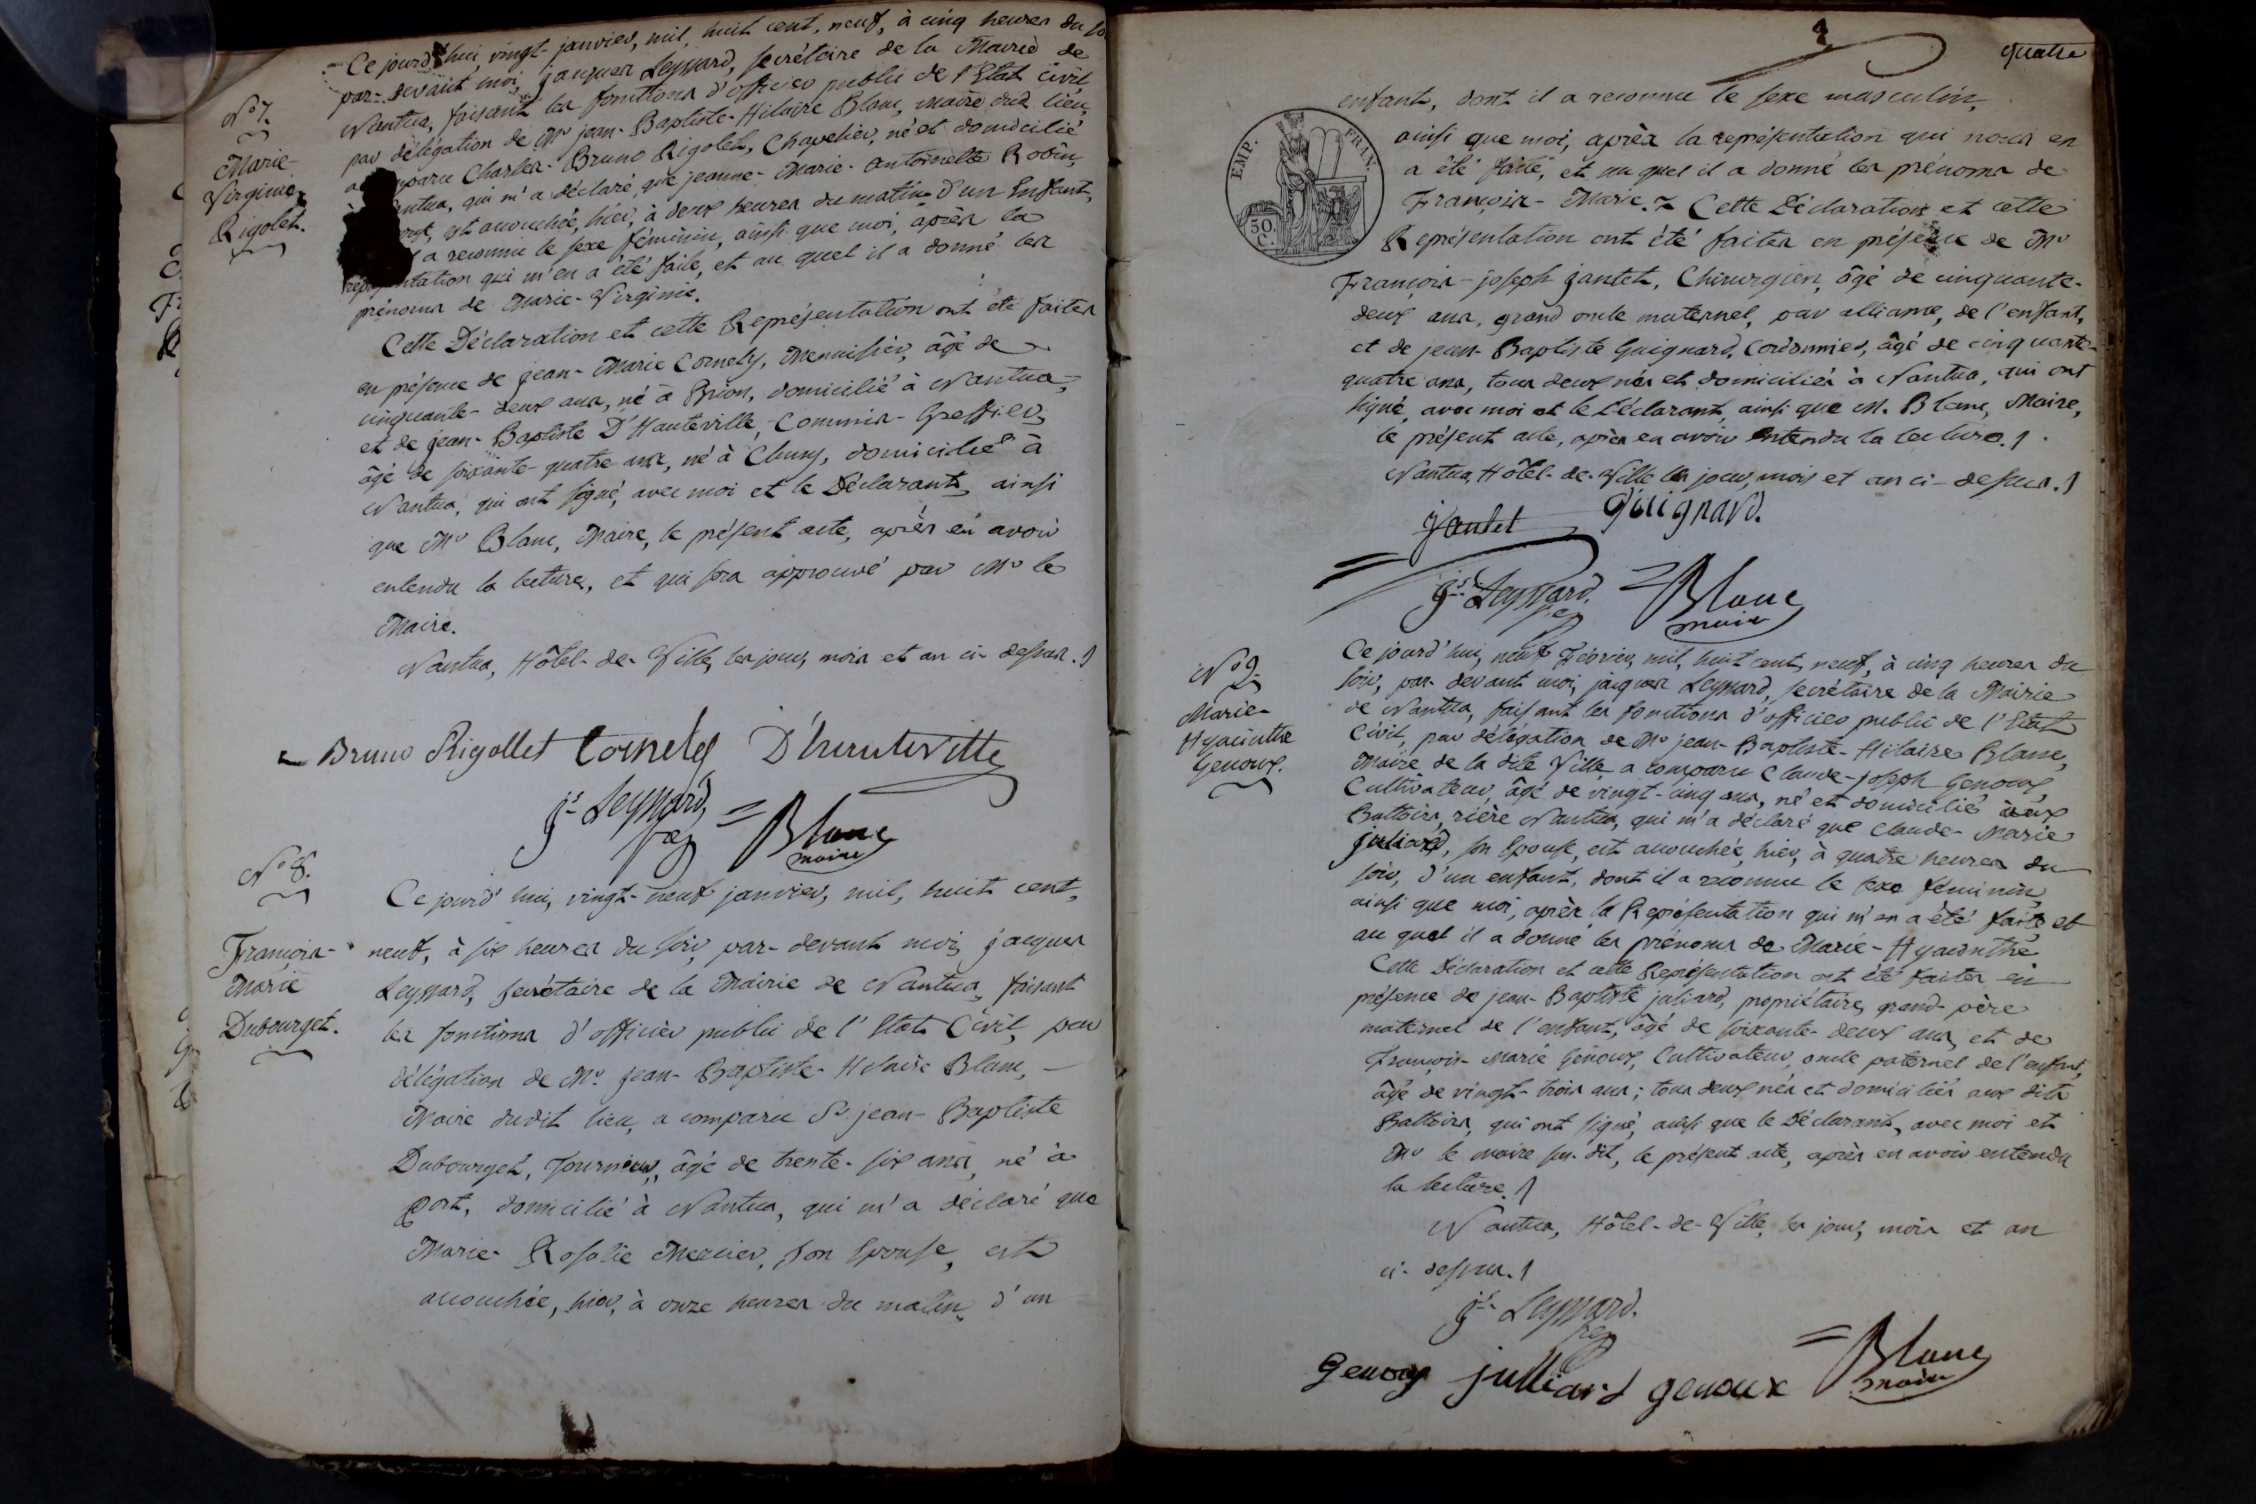 Ce jourd'hui, vingt janvier, mil, huit cent, neuf, à cinq heures du
par-devant moi, jacques Leyssard, secrétaire de la Mairie de
Nantua, faisant les fonctions d'officier public de l'Etat civil,
par délégation de Mr jean-Baptiste-Hilaire Blanc, maire dud. lieu,
Charles-Bruno Rigolet, Chapelier, né et domicilié
qui m'a déclaré, que jeanne-Marie-antoinette Robin,
est accouchée, hier, à deux heures du matin d'un Enfant,
a reconnu le sexe féminin, ainsi que moi, après la
représentation qui m'en a été faite, et au quel il a donné les
prénoms de Marie-Virginie.
N° 7.
Marie-
Virginie
Rigolet.
Cette Déclaration et cette Représentation ont été faites
en présence de jean-Marie Cornely, Menuisier, âgé de
cinquante-deux ans, né à Brion, domicilié à Nantua,
et de jean-Baptiste D'Hauteville, Commis-Greffier,
âgé de soixante-quatre ans, né à Cluny, domicilié à
Nantua, qui ont signé, avec moi et le Déclarant, ainsi
que Mr Blanc, Maire, le présent acte, après en avoir
entendu la lecture, et qui sera approuvé par Mr le
Maire.
Nantua, Hôtel-de-Ville, les jour, mois et an ci-dessus.
Bruno Rigollet Cornely D'hauteville
js Leyssard, Blanc
maire
N° 8.
François-
Marie
Dubourget.
Ce jourd'hui, vingt-neuf janvier, mil, huit cent,
neuf, à six heures du soir, par-devant moi, jacques
Leyssard, secrétaire de la Mairie de Nantua, faisant
les fonctions d'officier public de l'Etat Civil, par
délégation de Mr jean-Baptiste-Hilaire Blanc,
Maire dudit lieu, a comparu Sr jean-Baptiste
Dubourget, Tourneur, âgé de trente-six ans, né à
Port, domicilié à Nantua, qui m'a déclaré que
Marie-Rosalie Mercier, son Epouse, est
accouchée, hier, à onze heures du matin, d'un
quatre
enfant, dont il a reconnu le sexe masculin,
ainsi que moi, après la représentation qui nous en
a été faite, et au quel il a donné les prénoms de
François-Marie. Cette Déclaration et cette
Représentation ont été faites en présence de Mr
François-joseph jantet, Chirurgien, âgé de cinquante-
deux ans, grand oncle maternel, par alliance, de l'enfant,
et de jean-Baptiste Guignard, Cordonnier, âgé de cinquante-
quatre ans, tous deux nés et domiciliés à Nantua, qui ont
signé, avec moi et le Déclarant, ainsi que M. Blanc, Maire,
le présent acte, après en avoir entendu la lecture.
Nantua, Hôtel-de-Ville les jour, mois et an ci-dessus.
EMP. FRAN.
50.
C.
jantet Guignard.
js Leyssard. Blanc
maire
N° 9.
Marie-
Hyacinthe
Genoux.
Ce jourd'hui, neuf Février, mil, huit cent, neuf, à cinq heures du
soir, par-devant moi, jacques Leyssard, secrétaire de la Mairie
de Nantua, faisant les fonctions d'officier public de l'Etat
Civil, par délégation de Mr jean-Baptiste-Hilaire Blanc,
Maire de la dite Ville, a comparu Claude-joseph Genoux,
Cultivateur, âgé de vingt-cinq ans, né et domicilié aux
Battoirs, rière Nantua, qui m'a déclaré que Claude-Marie
juliard, son Epouse, est accouchée, hier, à quatre heures du
soir, d'un enfant, dont il a reconnu le sexe féminin,
ainsi que moi, après la Représentation qui m'en a été faite, et
au quel il a donné les prénoms de Marie-Hyacinthe
Cette Déclaration et cette Représentation ont été faites en
présence de jean-Baptiste juliard, propriétaire, grand-père
maternel de l'enfant, âgé de soixante-deux ans, et de
François-Marie Genoux, Cultivateur, oncle paternel de l'enfant,
âgé de vingt-trois ans; tous deux nés et domiciliés aux dits
Battoirs, qui ont signé, ainsi que le Déclarant, avec moi et
Mr le maire sus-dit, le présent acte, après en avoir entendu
la lecture.
Nantua, Hôtel-de-Ville, les jour, mois et an
ci-dessus.
js Leyssard.
Genoux julliard genoux Blanc
maire